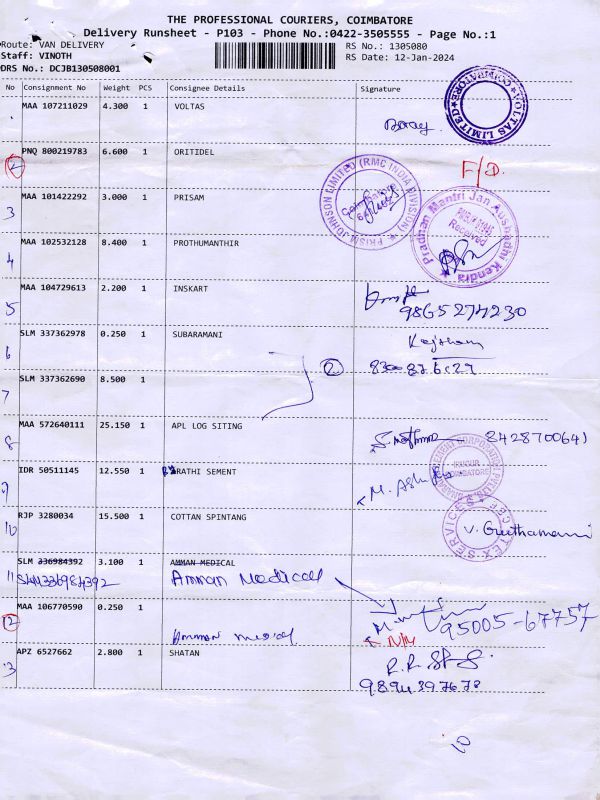 THE PROFESSIONAL COURIERS, COIMBATORE
Delivery Runsheet - P103 - Phone No.:0422-3505555 - Page No.:1
Route: VAN DELIVERY RS No.: 1305080
Staff: VINOTH RS Date: 12-Jan-2024
DRS No.: DCJB130508001
No Consignment No Weight PCS Consignee Details Signature
MAA 107211029 4.300 1 VOLTAS
VOLTAS LIMITED COIMBATORE
2 PNQ 800219783 6.600 1 ORITIDEL F/D.
PRISM JOHNSON LIMITED (RMC INDIA DIVISION)
3 MAA 101422292 3.000 1 PRISAM
Pradhan Mantri Jan Aushadhi Kendra
Received
4 MAA 102532128 8.400 1 PROTHUMANTHIR
5 MAA 104729613 2.200 1 INSKART
9865274230
6 SLM 337362978 0.250 1 SUBARAMANI
2
7 SLM 337362690 8.500 1
8 MAA 572640111 25.150 1 APL LOG SITING 8428700641
9 IDR 50511145 12.550 1 BARATHI SEMENT
10 RJP 3280034 15.500 1 COTTAN SPINTANG V. Geethamani
11 SLM 336984392 3.100 1 AMMAN MEDICAL
SLM336984392 Amman Medical
12 MAA 106770590 0.250 1 95005-67757
Amman medical
13 APZ 6527662 2.800 1 SHATAN
9894397678
10